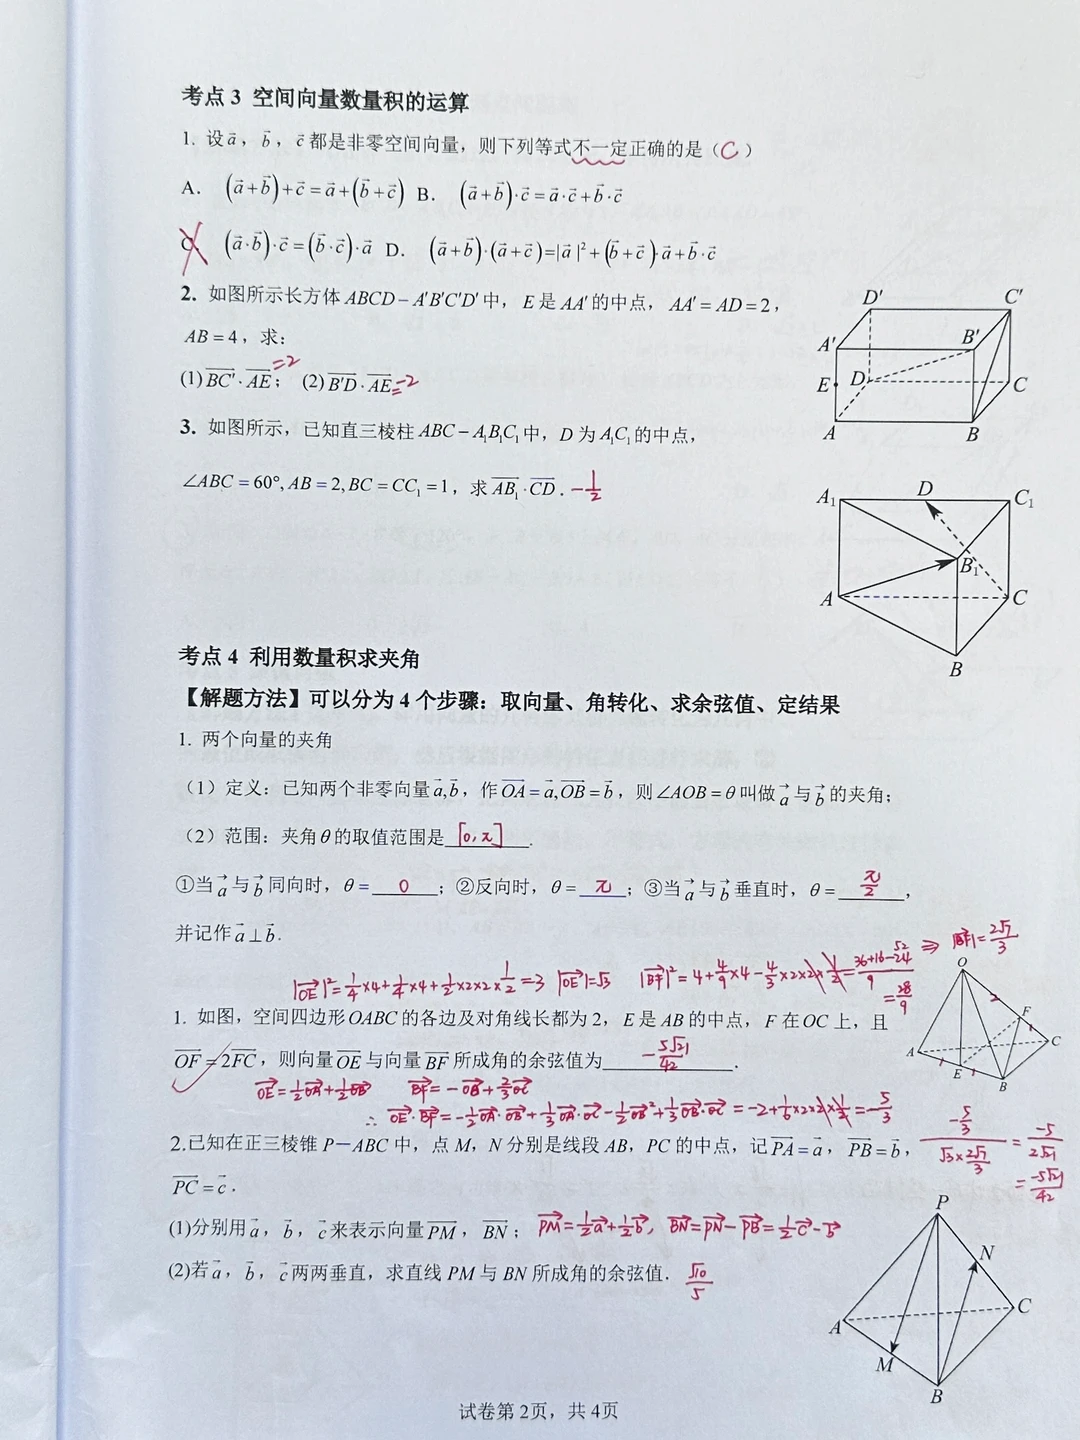 考点 3 空间向量数量积的运算
1. 设 a⃗，b⃗，c⃗ 都是非零空间向量，则下列等式不一定正确的是（C）
A. (a⃗+b⃗)+c⃗=a⃗+(b⃗+c⃗) B. (a⃗+b⃗)·c⃗=a⃗·c⃗+b⃗·c⃗
C. (a⃗·b⃗)·c⃗=(b⃗·c⃗)·a⃗ D. (a⃗+b⃗)·(a⃗+c⃗)=|a⃗|²+(b⃗+c⃗)·a⃗+b⃗·c⃗
2. 如图所示长方体 ABCD－A′B′C′D′ 中，E 是 AA′ 的中点，AA′＝AD＝2，
AB＝4，求：
(1) BC′⃗·AE⃗；=2 (2) B′D⃗·AE⃗.=-2
D′ C′
A′ B′
E D C
A B
3. 如图所示，已知直三棱柱 ABC－A₁B₁C₁ 中，D 为 A₁C₁ 的中点，
∠ABC＝60°, AB＝2, BC＝CC₁＝1，求 AB₁⃗·CD⃗. -1/2
A₁ D C₁
B₁
A C
B
考点 4 利用数量积求夹角
【解题方法】可以分为 4 个步骤：取向量、角转化、求余弦值、定结果
1. 两个向量的夹角
（1）定义：已知两个非零向量 a⃗,b⃗，作 OA⃗＝a⃗,OB⃗＝b⃗，则∠AOB＝θ 叫做 a⃗ 与 b⃗ 的夹角；
（2）范围：夹角θ的取值范围是 [0,π] .
①当 a⃗ 与 b⃗ 同向时，θ＝ 0 ；②反向时，θ＝ π ；③当 a⃗ 与 b⃗ 垂直时，θ＝ π/2 ，
并记作 a⃗⊥b⃗.
|OE⃗|²=1/4×4+1/4×4+1/2×2×2×1/2=3 |OE⃗|=√3 |BF⃗|²=4+4/9×4-4/3×2×2×1/2=(36+16-24)/9 52 ⇒ |BF⃗|=2√7/3
=28/9
1. 如图，空间四边形 OABC 的各边及对角线长都为 2，E 是 AB 的中点，F 在 OC 上，且
OF⃗＝2FC⃗，则向量 OE⃗ 与向量 BF⃗ 所成角的余弦值为 -5√21/42 .
O
2
F
1
A C
E
B
OE⃗=1/2OA⃗+1/2OB⃗ BF⃗=-OB⃗+2/3OC⃗
∴ OE⃗·BF⃗=-1/2OA⃗·OB⃗+1/3OA⃗·OC⃗-1/2OB⃗²+1/3OB⃗·OC⃗=-2+1/6×2×2×1/2=-5/3
(-5/3)/(√3×2√7/3)=-5/2√21
=-5√21/42
2.已知在正三棱锥 P－ABC 中，点 M，N 分别是线段 AB，PC 的中点，记 PA⃗＝a⃗，PB⃗＝b⃗，
PC⃗＝c⃗.
(1)分别用 a⃗，b⃗，c⃗ 来表示向量 PM⃗，BN⃗； PM⃗=1/2a⃗+1/2b⃗, BN⃗=PN⃗-PB⃗=1/2c⃗-b⃗
(2)若 a⃗，b⃗，c⃗ 两两垂直，求直线 PM 与 BN 所成角的余弦值. √10/5
P
N
A C
M
B
试卷第 2页，共 4页